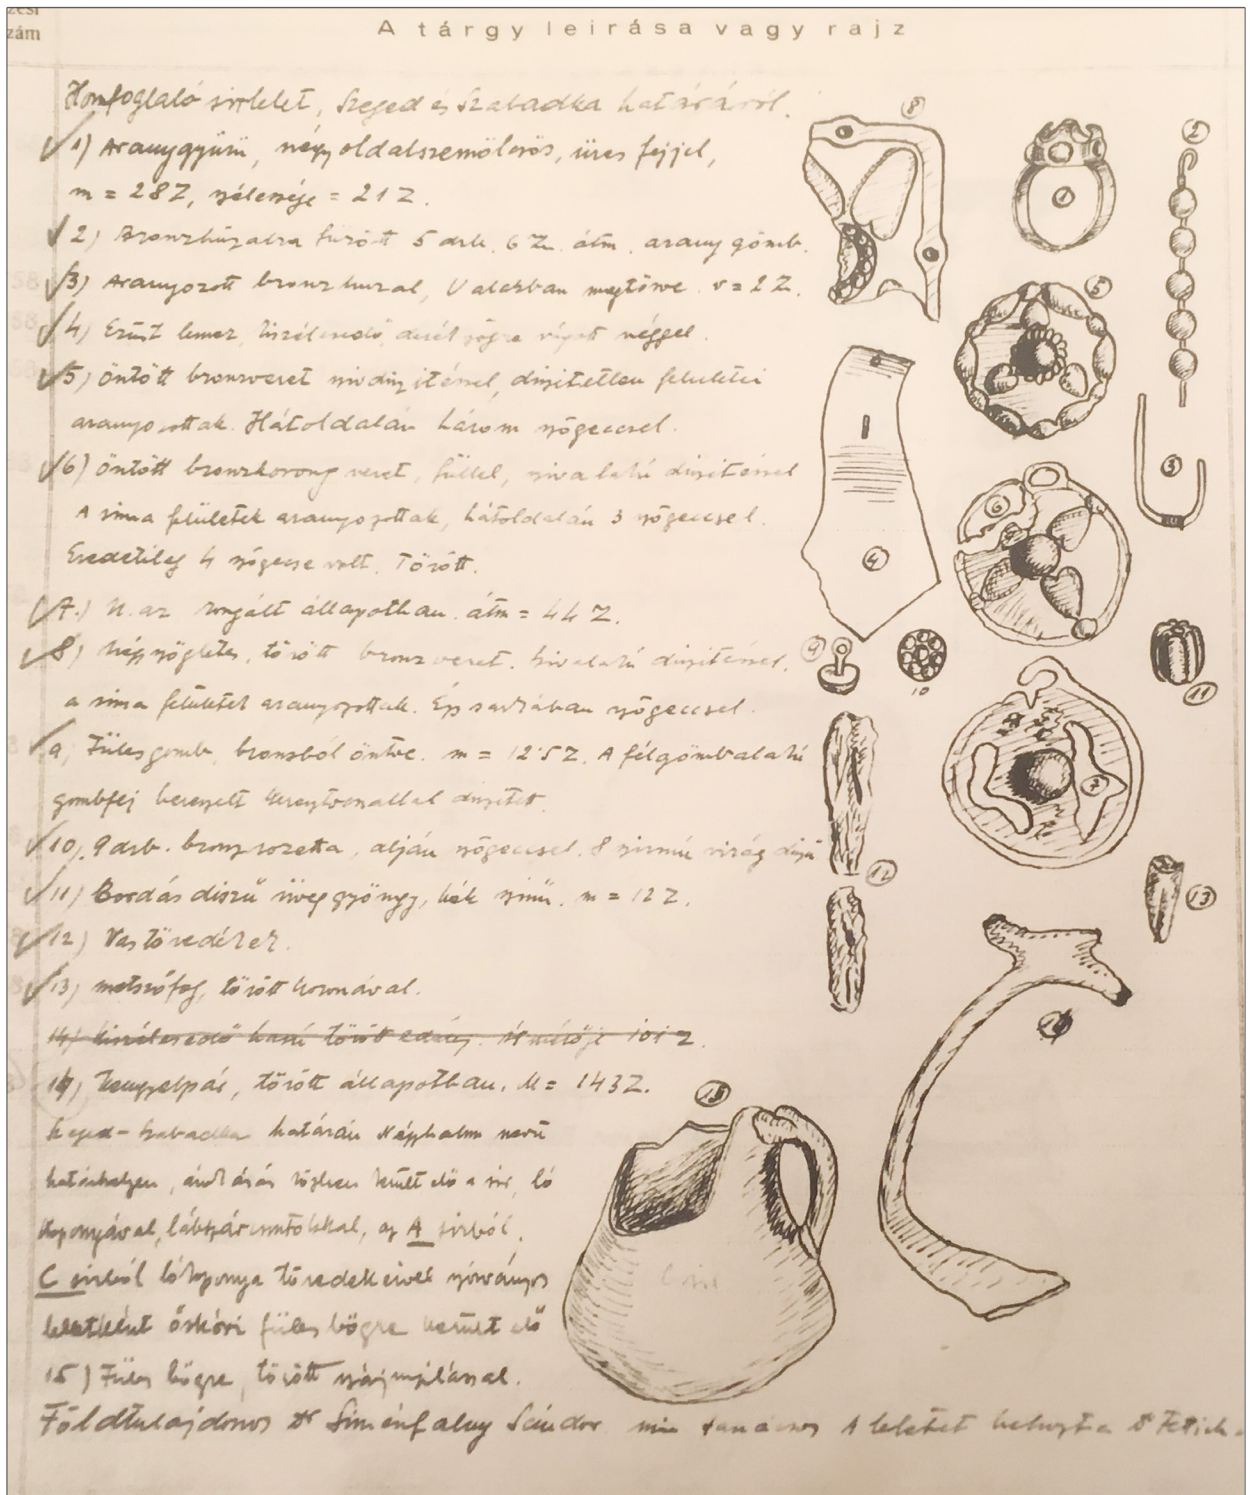 zési
szám
A tárgy leirása vagy rajz
Honfoglaló sirlelet, Szeged és Szabadka határáról.
1) Aranygyűrű, négy oldalszemölcsös, üres fejjel,
m = 28 Z, szélessége = 21 Z.
2) Bronzhúzalra fűzött 5 drb. 6 Z. átm. arany gömb.
3) Aranyozott bronz huzal, U alakban meghajlítva v = 2 Z.
4) Ezüst lemez, kiszélesedő, derékszögre vágott véggel.
5) öntött bronzveret szivdiszitéssel, diszitetlen felületei
aranyozottak. Hátoldalán három szögeccsel.
6) öntött bronzkorong veret, füllel, szivalakú diszitéssel
A sima felületek aranyozottak, hátoldalán 3 szögeccsel.
Eredetileg 4 szögecse volt. Törött.
7.) U. az rongált állapotban. átm = 44 Z.
8) Négyszögletes, törött bronzveret. Szivalakú diszitéssel,
a sima felületek aranyozottak. Ép sarkában szögeccsel.
9) Fülesgomb, bronzból öntve. m = 12.5 Z. A félgömbalakú
gombfej bevésett keresztvonallal diszitett.
10). 9 drb. bronzrozetta, alján szögeccsel. 8 szirmú virág disz
11) Bordás diszű üveggyöngy, kék szinű. m = 12 Z.
12) Vastöredékek.
13) metszőfog, törött koronával.
14) kiszélesedő hasú törött edény. Átmérője 101 Z.
14) Kengyelpár, törött állapotban. M = 143 Z.
Szeged-Szabadka határán Népphalom nevű
határhelyen, ásatás közben került elő a sir, ló
koponyával, lábszárcsontokkal, az A sirból.
C sirból lókoponya töredékeivel szórványos
leletként őskori füles bögre került elő
15) Füles bögre, törött szájnyilással.
Földtulajdonos Dr Siménfalvy Sándor min tanácsos A leletet behozta Dr Fettich
8
1
2
5
3
6
4
9
10
11
7
12
13
14
15
C sir